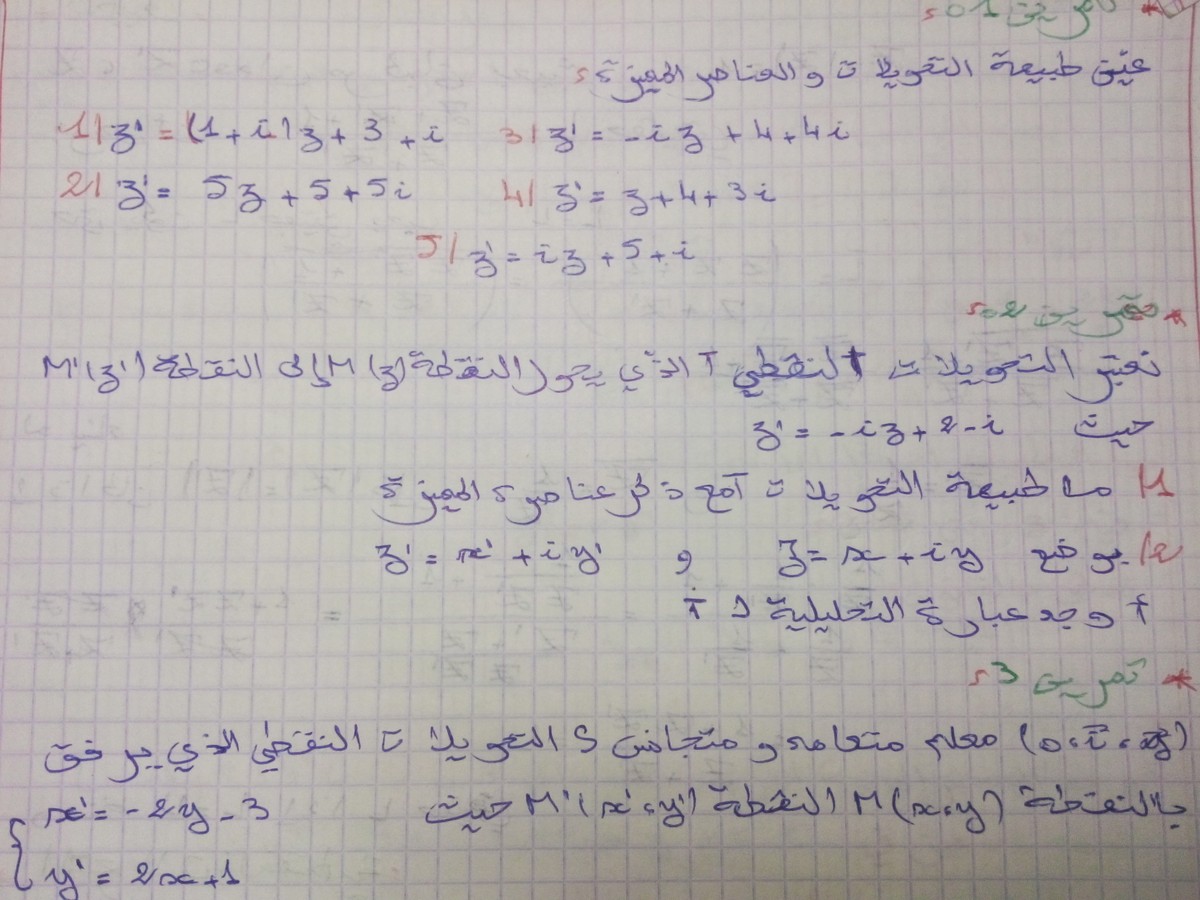 * تمرين 01:
عين طبيعة التحويلات والعناصر المميزة:
1/ z' = (1+i)z + 3 + i 3/ z' = -iz + 4 + 4i
2/ z' = 5z + 5 + 5i 4/ z' = z + 4 + 3i
5/ z' = iz + 5 + i
* تمرين 02:
نعتبر التحويلات النقطي T الذي يحول النقطة M(z) إلى النقطة M'(z')
حيث z' = -iz + 2 - i
1/ ما طبيعة التحويلات مع ذكر عناصره المميزة
2/ بوضع z = x + iy و z' = x' + iy'
أوجد عبارة التحليلية لـ T
* تمرين 3:
(o, i, j) معلم متعامد و متجانس S التحويلات النقطي الذي يرفق
بالنقطة M(x,y) النقطة M'(x',y') حيث { x' = -2y - 3
y' = 2x + 1